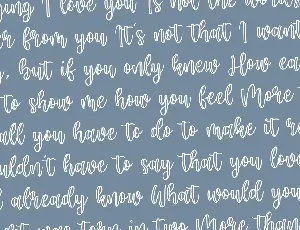 I love you Is not the words
r from you It's not that I want
, but if you only knew How ea
to show me how you feel More t
all you have to do to make it re
uldn't have to say that you love
already know What would you
torn in two More than